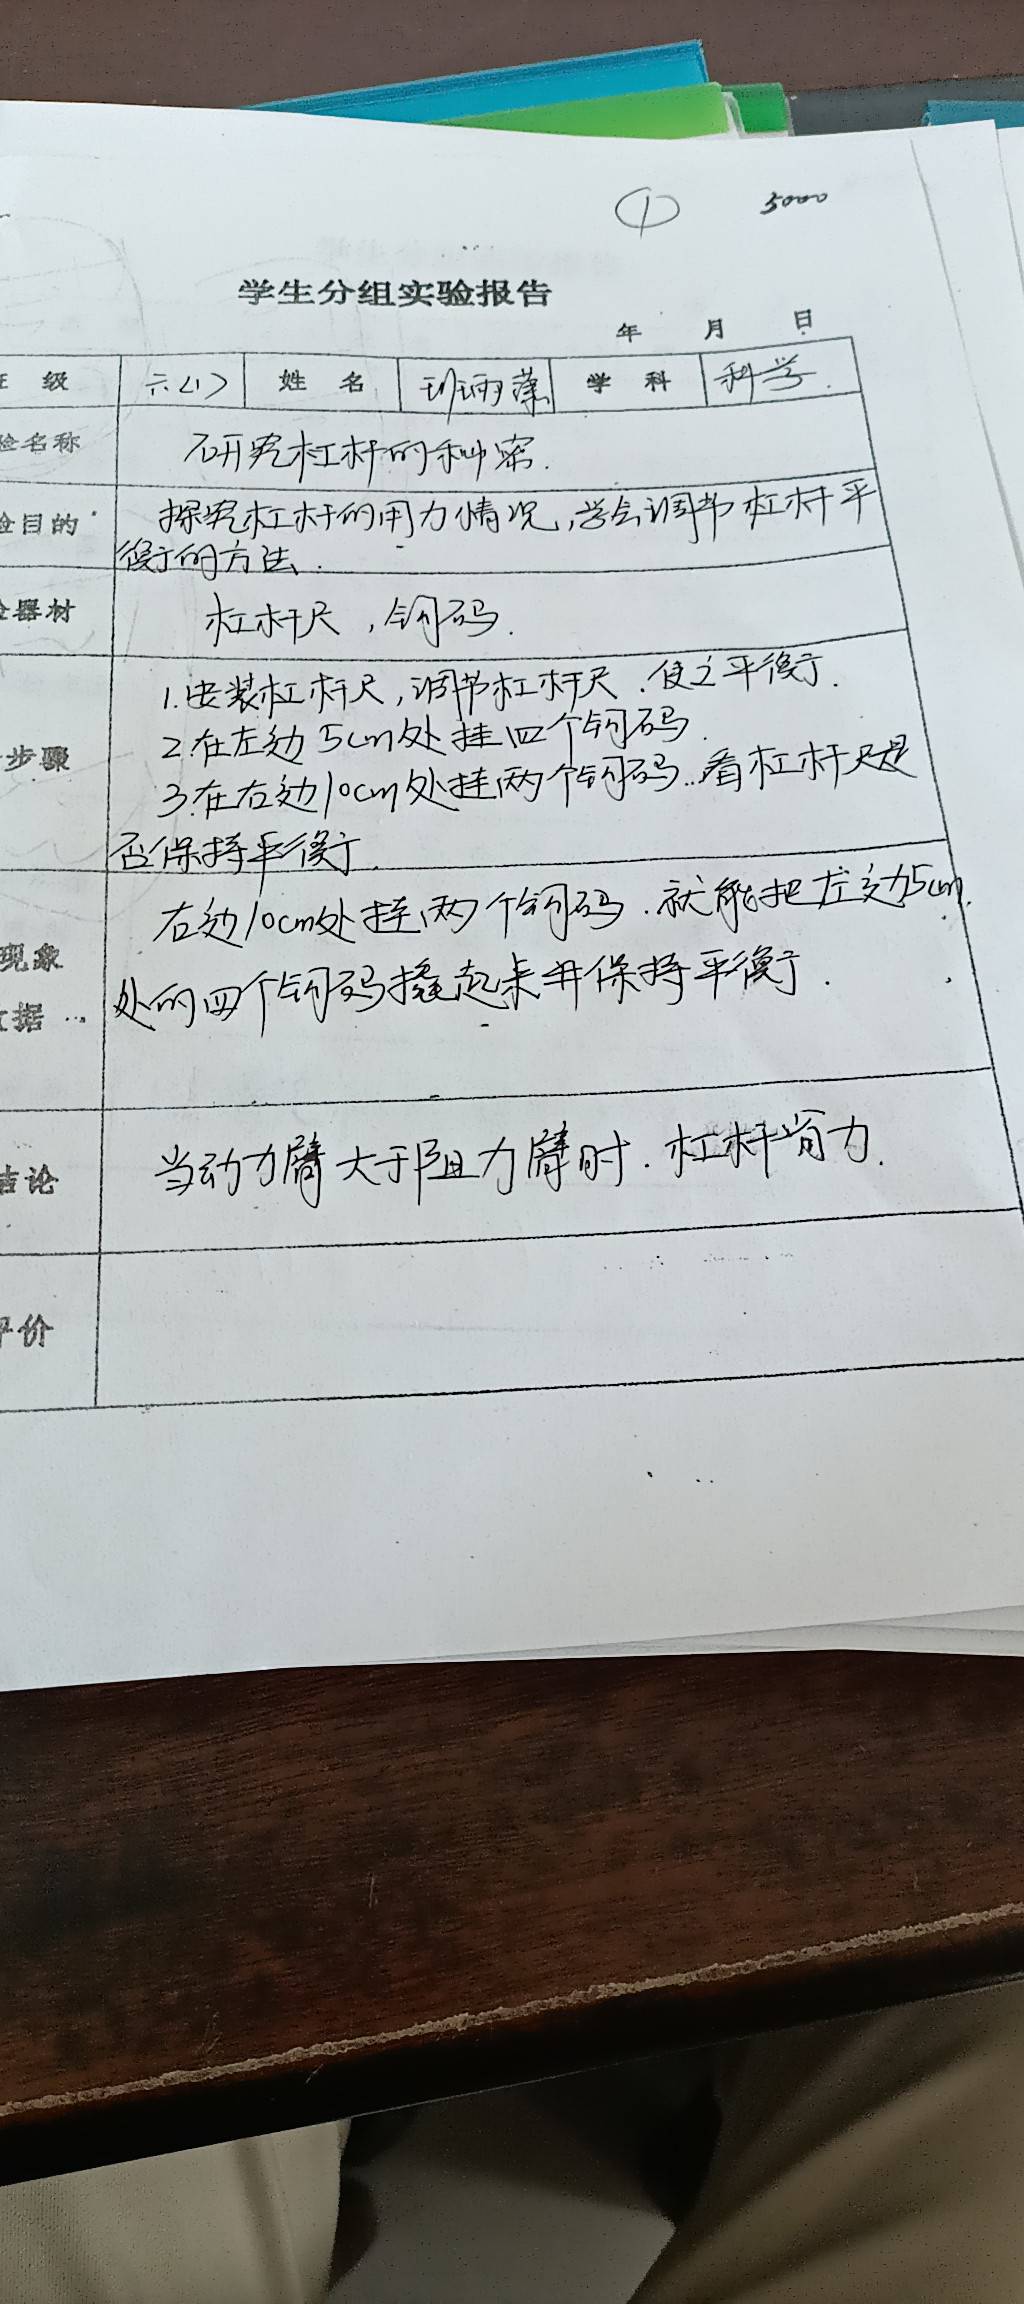 ① 5000
学生分组实验报告
年 月 日
级 六(1) 姓 名 学 科 科学
验名称 研究杠杆的秘密.
验目的 探究杠杆的用力情况,学会调节杠杆平
衡的方法.
器材 杠杆尺,钩码.
步骤 1.安装杠杆尺,调节杠杆尺.使之平衡.
2.在左边5cm处挂四个钩码.
3.在右边10cm处挂两个钩码..看杠杆尺是
否保持平衡.
右边10cm处挂两个钩码.就能把左边5cm
现象
处的四个钩码撬起来并保持平衡.
据
结论 当动力臂大于阻力臂时.杠杆省力.
评价